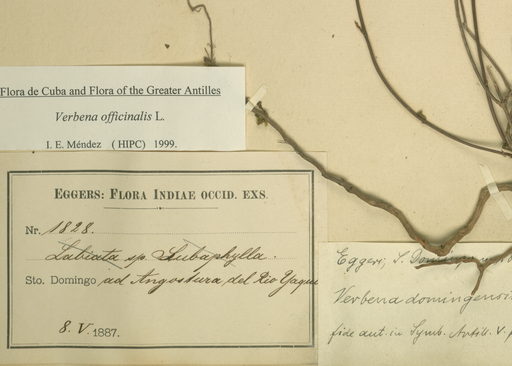 Flora de Cuba and Flora of the Greater Antilles
Verbena officinalis L.
I. E. Méndez (HIPC) 1999.
EGGERS: FLORA INDIAE OCCID. EXS.
Nr. 1828.
Labiata sp. Subaphylla.
Sto. Domingo ad Angostura del Rio Yaque
8. V. 1887.
Eggers, S. Domingo
Verbena domingensis
fide aut. in Symb. Antill. V. p